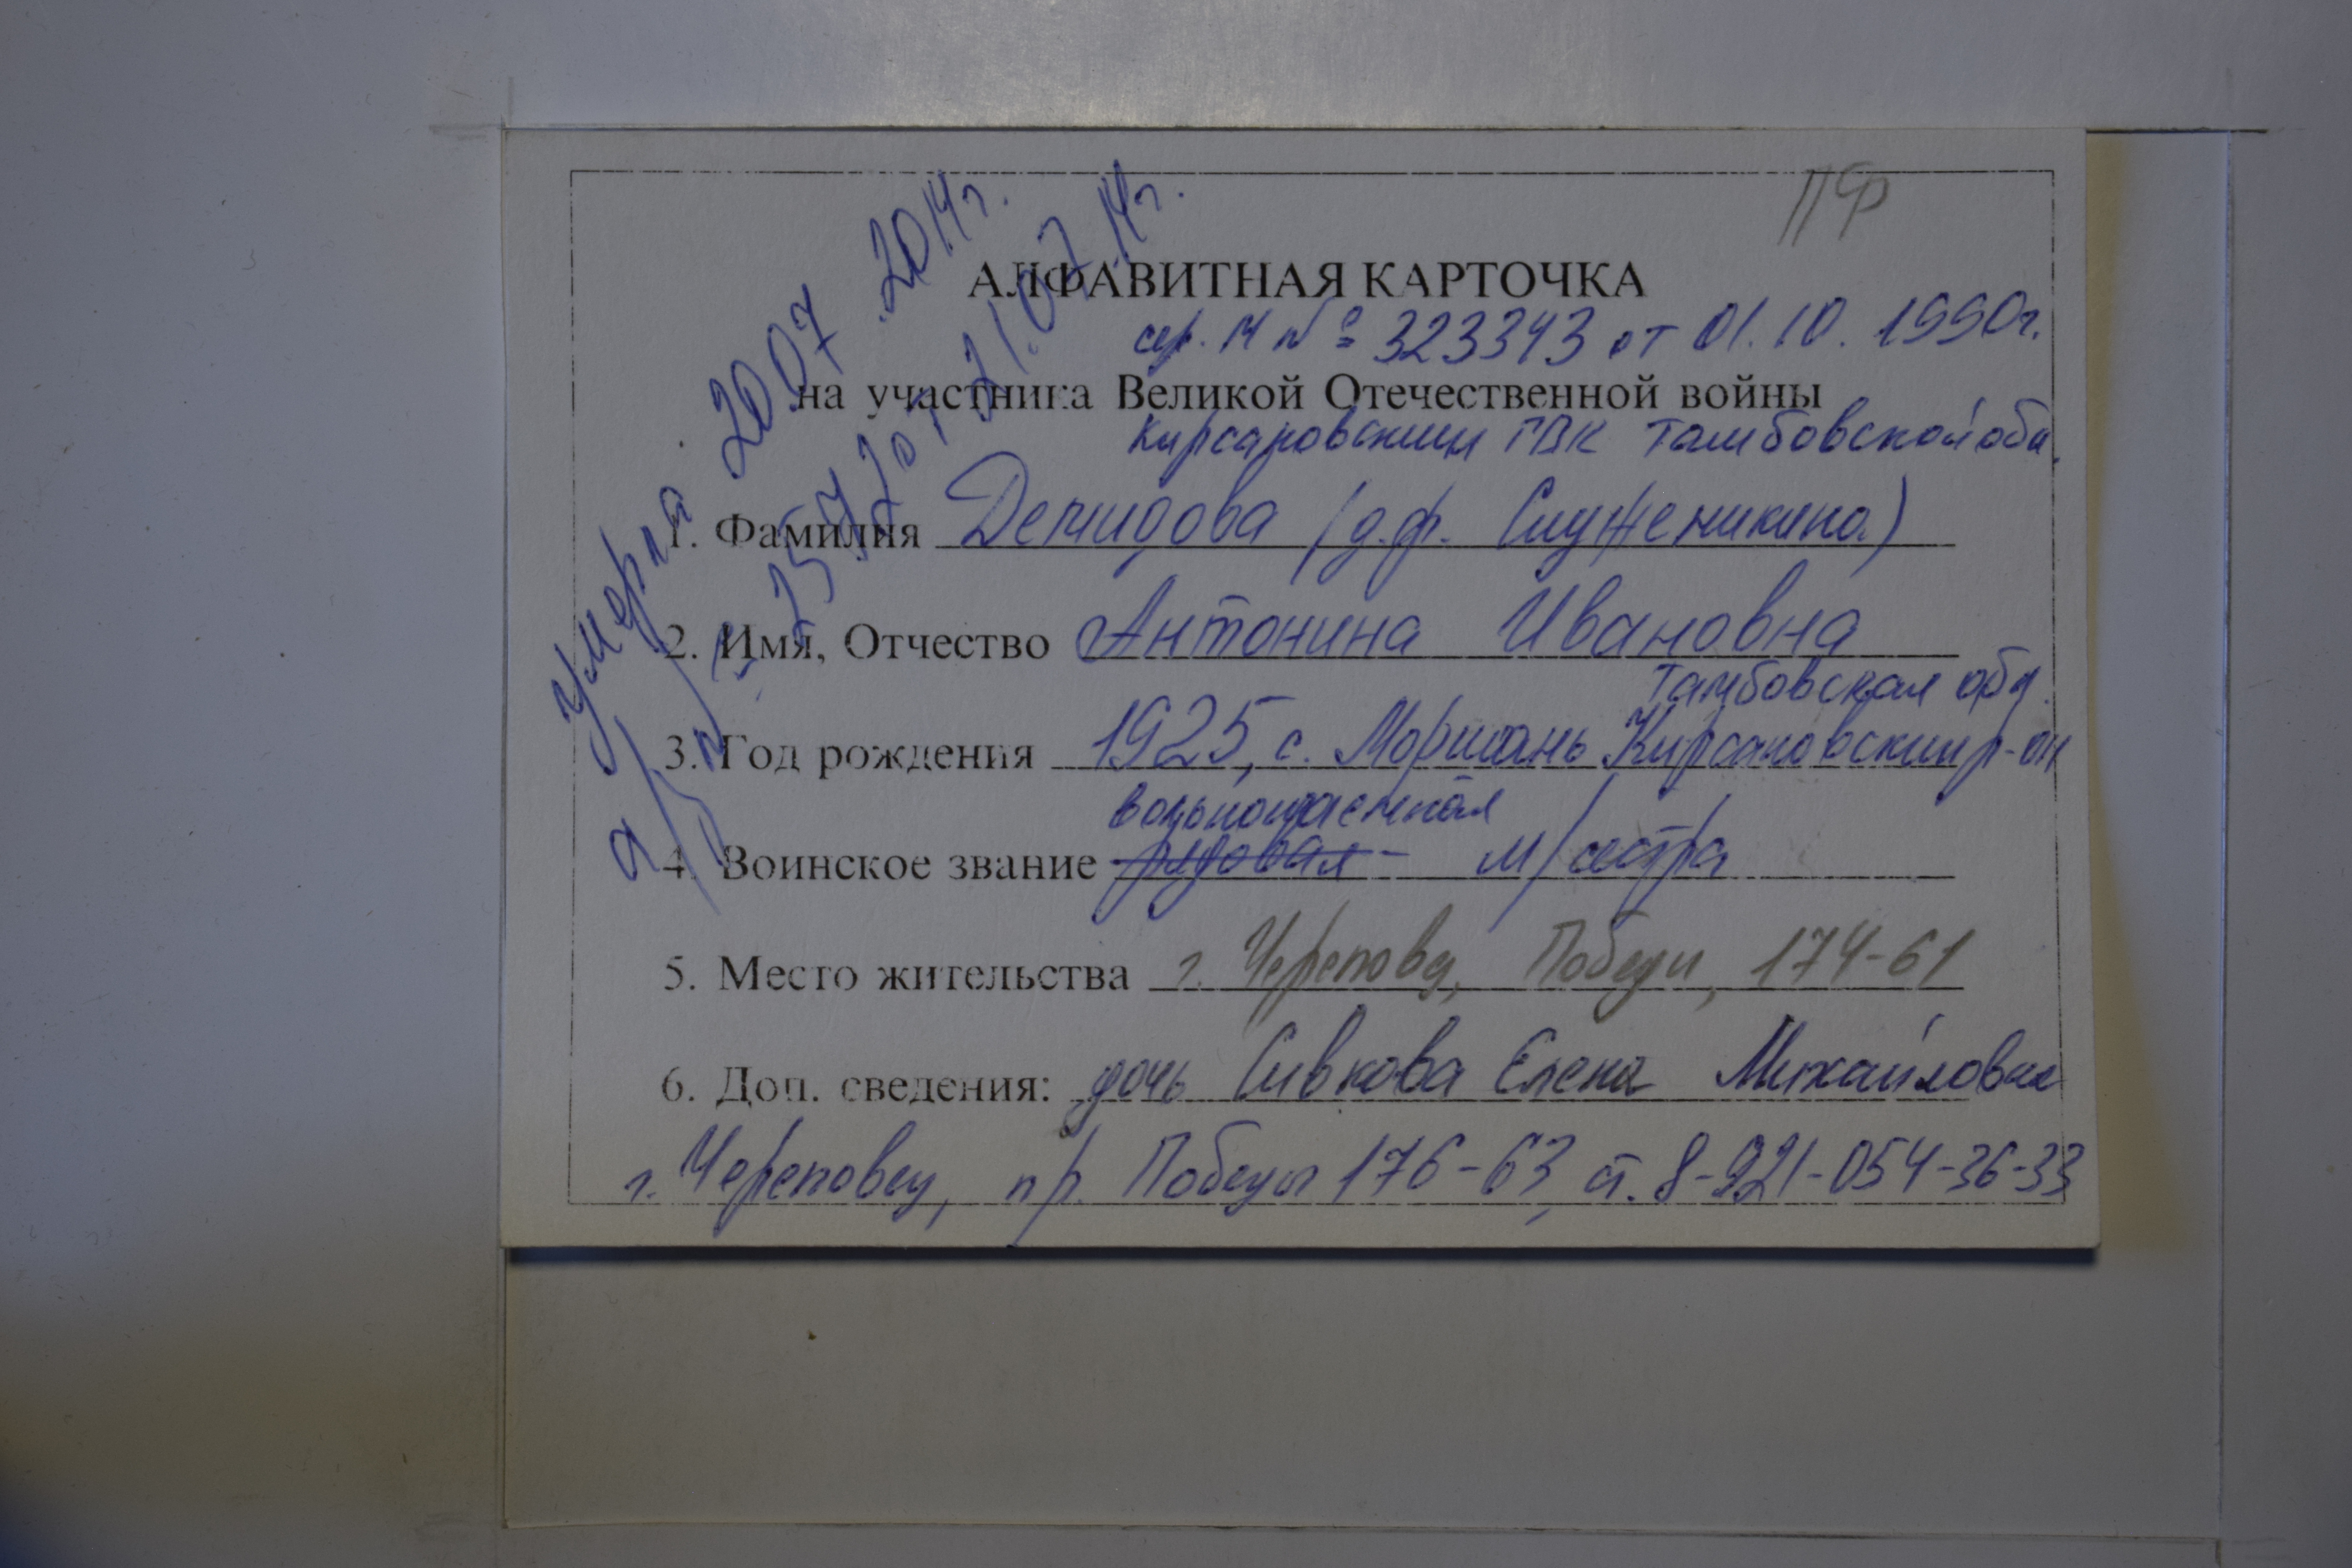 ПФ
АЛФАВИТНАЯ КАРТОЧКА
сер. М № 323343 от 01.10.1990г.
на участника Великой Отечественной войны
Кирсановский ГВК Тамбовской обл.
1. Фамилия Демидова (д.ф. Служеникина)
2. Имя, Отчество Антонина Ивановна
Тамбовская обл.
3. Год рождения 1925, с. Моршань Кирсановский р-он
вольнонаемная
4. Воинское звание рядовая - м/сестра
5. Место жительства г. Череповец, Победы, 174-61
6. Доп. сведения: дочь Сивкова Елена Михайловна
г. Череповец, пр. Победы 176-63, т. 8-921-054-36-33
умерла 20.07.2014г.
от 21.07.14г.